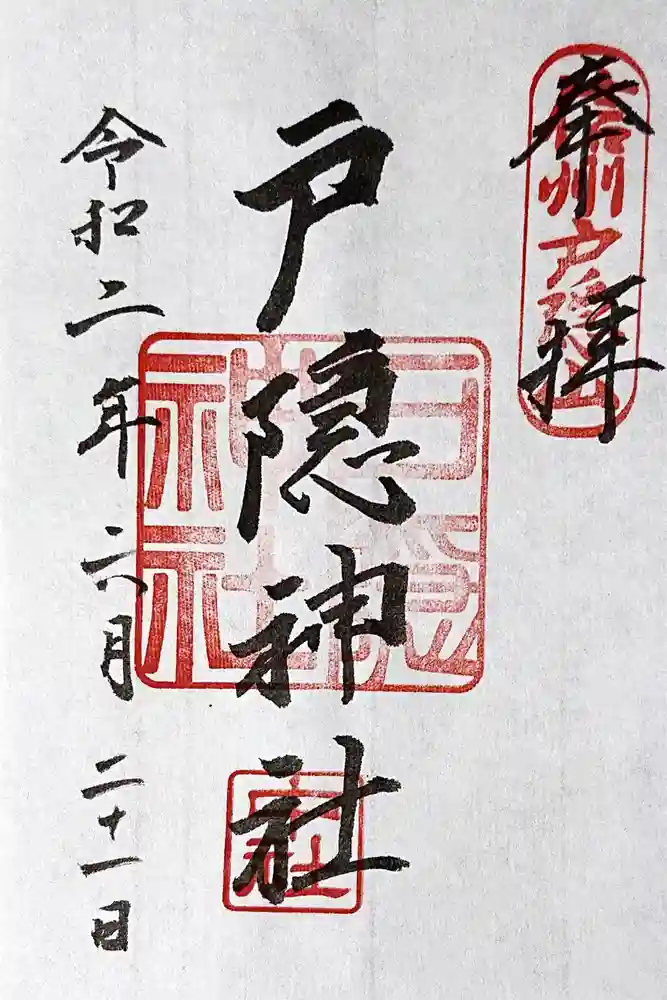 奉拝
信州戸隠山
戸隠神社
戸隠神社
令和二年六月二十一日